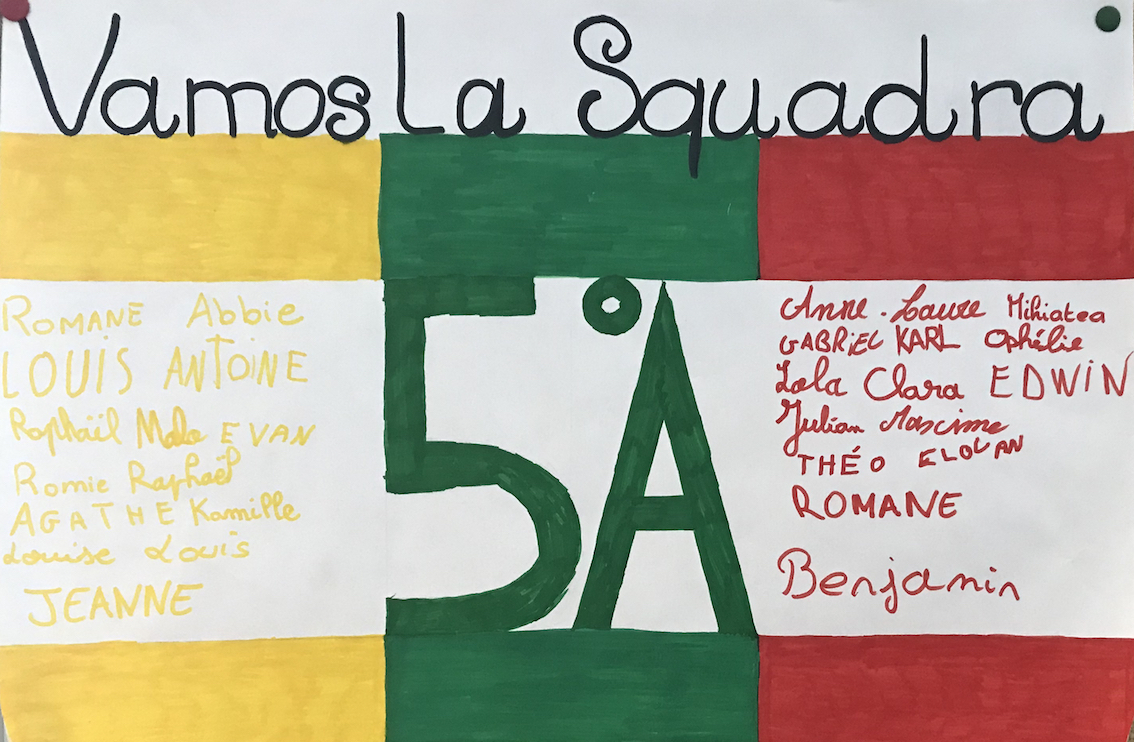 Vamos La Squadra
ROMANE Abbie
LOUIS ANTOINE
Raphaël Malo EVAN
Romie Raphaël
AGATHE Kamille
Louise Louis
JEANNE
5°A
Anne-Laure Mihiatea
GABRIEL KARL Ophélie
Lola Clara EDWIN
Julian Maxime
THÉO ELOUAN
ROMANE
Benjamin